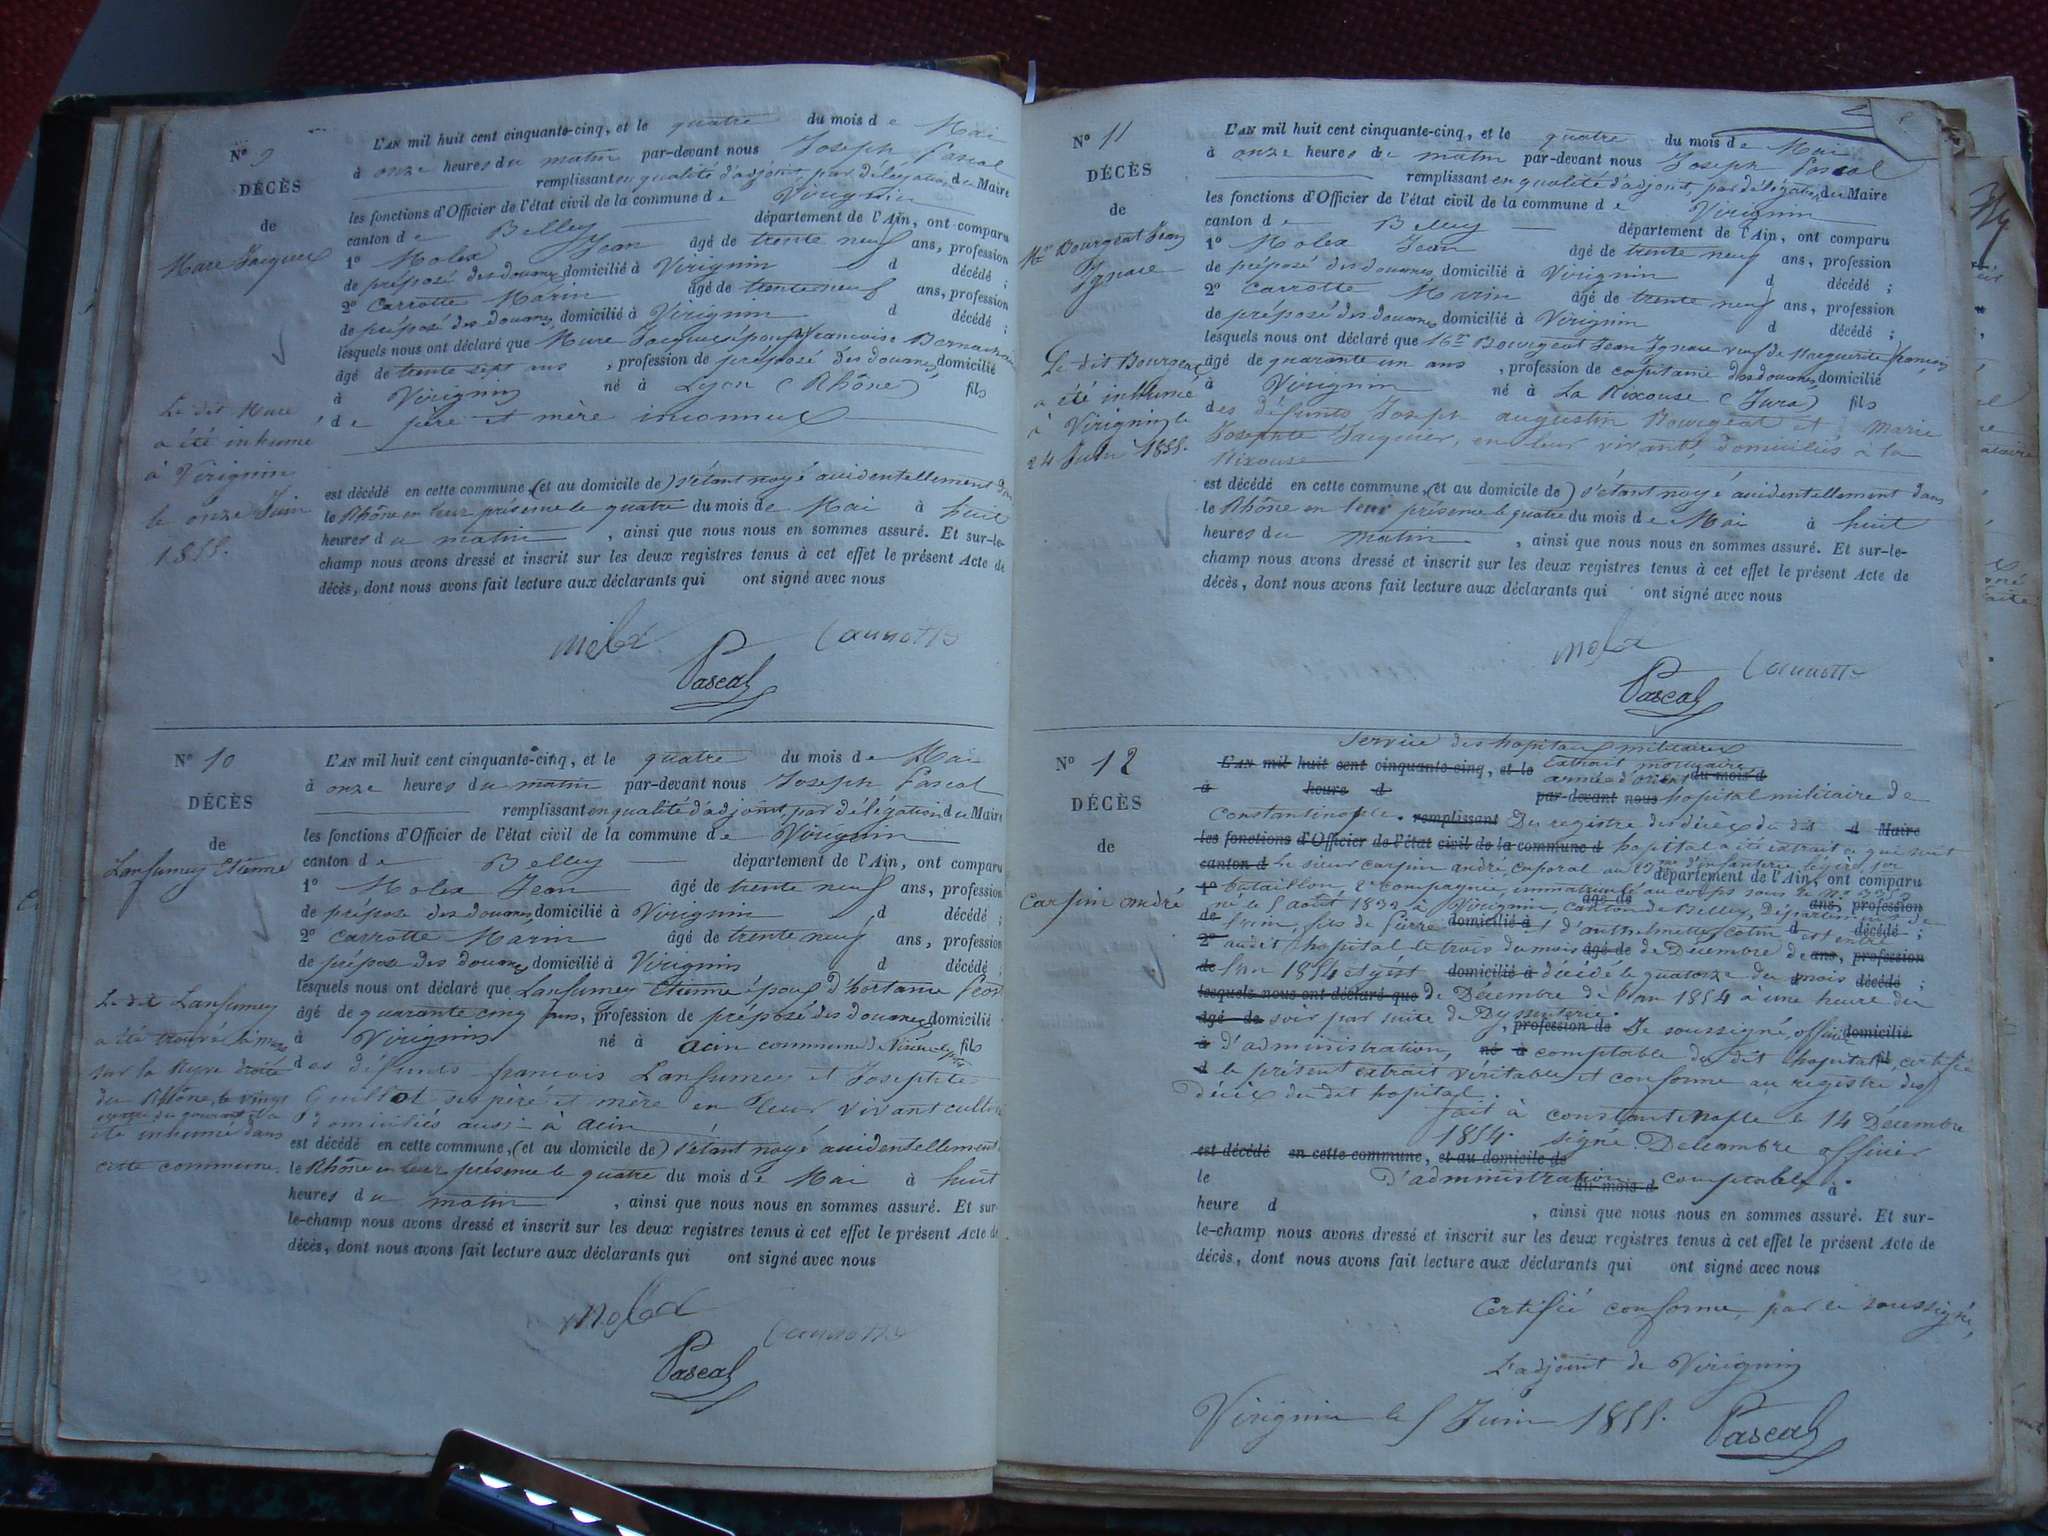 Nº 9
DÉCÈS
de
Mure Jacques
Le dit Mure
a été inhumé
à Virignin
le onze Juin
1855.
L'AN mil huit cent cinquante-cinq, et le quatre du mois de Mai
à onze heures du matin par-devant nous Joseph Pascal
remplissant en qualité d'adjoint, par délégation du Maire
les fonctions d'Officier de l'état civil de la commune de Virignin
canton de Belley département de l'Ain, ont comparu
1º Molex Jean âgé de trente neuf ans, profession
de préposé des douanes domicilié à Virignin d décédé ;
2º Carrotte Marin âgé de trente neuf ans, profession
de préposé des douanes domicilié à Virignin d décédé ;
lesquels nous ont déclaré que Mure Jacques époux de francoise
âgé de trente sept ans, profession de préposé des douanes, domicilié
à Virignin né à Lyon (Rhône) fils
de père et mère inconnus
est décédé en cette commune, (et au domicile de) s'étant noyé accidentellement dans
le Rhône en leur présence le quatre du mois de Mai à huit
heures du matin, ainsi que nous nous en sommes assuré. Et sur-le-
champ nous avons dressé et inscrit sur les deux registres tenus à cet effet le présent Acte de
décès, dont nous avons fait lecture aux déclarants qui ont signé avec nous
Molex Carrotte
Pascal
Nº 10
DÉCÈS
de
Lanfumey Etienne
Le dit Lanfumey
a été trouvé
sur la Rive droite
du Rhône, le vingt
du courant il a
été inhumé dans
cette commune.
L'AN mil huit cent cinquante-cinq, et le quatre du mois de Mai
à onze heures du matin par-devant nous Joseph Pascal
remplissant en qualité d'adjoint, par délégation du Maire
les fonctions d'Officier de l'état civil de la commune de Virignin
canton de Belley département de l'Ain, ont comparu
1º Molex Jean âgé de trente neuf ans, profession
de préposé des douanes domicilié à Virignin d décédé ;
2º Carrotte Marin âgé de trente neuf ans, profession
de préposé des douanes domicilié à Virignin d décédé ;
lesquels nous ont déclaré que Lanfumey Etienne époux d'hortance
âgé de quarante cinq ans, profession de préposé des douanes, domicilié
à Virignin né à acin commune de fils
des défunts francois Lanfumey et Josephte
Guillot ses père et mère en leur vivant
domiciliés aussi à acin
est décédé en cette commune, (et au domicile de) s'étant noyé accidentellement
le Rhône en leur présence le quatre du mois de Mai à huit
heures du matin, ainsi que nous nous en sommes assuré. Et sur-
le-champ nous avons dressé et inscrit sur les deux registres tenus à cet effet le présent Acte de
décès, dont nous avons fait lecture aux déclarants qui ont signé avec nous
Molex Carrotte
Pascal
Nº 11
DÉCÈS
de
Mr Bourgeat Jean
Ignace
Le dit Bourgeat
a été inhumé
à Virignin le
24 Juin 1855.
L'AN mil huit cent cinquante-cinq, et le quatre du mois de Mai
à onze heures de matin par-devant nous Joseph Pascal
remplissant en qualité d'adjoint, par délégation du Maire
les fonctions d'Officier de l'état civil de la commune de Virignin
canton de Belley département de l'Ain, ont comparu
1º Molex Jean âgé de trente neuf ans, profession
de préposé des douanes, domicilié à Virignin d décédé ;
2º Carrotte Marin âgé de trente neuf ans, profession
de préposé des douanes domicilié à Virignin d décédé ;
lesquels nous ont déclaré que Mr Bourgeat Jean Ignace veuf de Marguerite françois
âgé de quarante un ans, profession de capitaine des douanes domicilié
à Virignin né à La Rixouse (Jura) fils
des défunts Joseph augustin Bourgeat et Marie
Josephte Jacquier, en leur vivant, domiciliés à la
Rixouse
est décédé en cette commune, (et au domicile de) s'étant noyé accidentellement dans
le Rhône en leur présence le quatre du mois de Mai à huit
heures du matin, ainsi que nous nous en sommes assuré. Et sur-le-
champ nous avons dressé et inscrit sur les deux registres tenus à cet effet le présent Acte de
décès, dont nous avons fait lecture aux déclarants qui ont signé avec nous
Molex Carrotte
Pascal
Nº 12
DÉCÈS
de
Carpin andré
Service des hopitaux militaires
L'AN mil huit cent cinquante-cinq, et le Extrait mortuaire
armée d'orient du mois d
à heure d par-devant nous hopital militaire de
Constantinople. remplissant Du registre des décès du dit d Maire
les fonctions d'Officier de l'état civil de la commune d hopital a été extrait ce qui suit
canton d Le sieur carpin andré, caporal au d'infanterie légère,
département de l'Ain, ont comparu
1º bataillon, 2e compagnie, immatriculé au corps sous le nº
né le 5 août 1832 à Virignin, canton de Belley, Département de âgé de ans, profession
de l'ain, fils de Pierre domicilié à et d'anthelmette est entré d décédé ;
2º audit hopital le trois du mois âgé de de Décembre de ans, profession
de l'an 1854 et y est domicilié à décédé le quatorze du mois décédé ;
lesquels nous ont déclaré que de Décembre de l'an 1854 à une heure du
âgé de soir par suite de Dyssenterie. profession de Je soussigné, officier domicilié
à d'administration, né à comptable du dit hopital fil, certifie
d le présent extrait véritable et conforme au registre des
Décès du dit hopital.
fait à constantinople le 14 Décembre
1854. signé Delcambre officier
est décédé en cette commune, et au domicile de
le D'administration comptable. du mois d à
heure d , ainsi que nous nous en sommes assuré. Et sur-
le-champ nous avons dressé et inscrit sur les deux registres tenus à cet effet le présent Acte de
décès, dont nous avons fait lecture aux déclarants qui ont signé avec nous
Certifié conforme, par le soussigné,
L'adjoint de Virignin
Virignin le 5 Juin 1855. Pascal